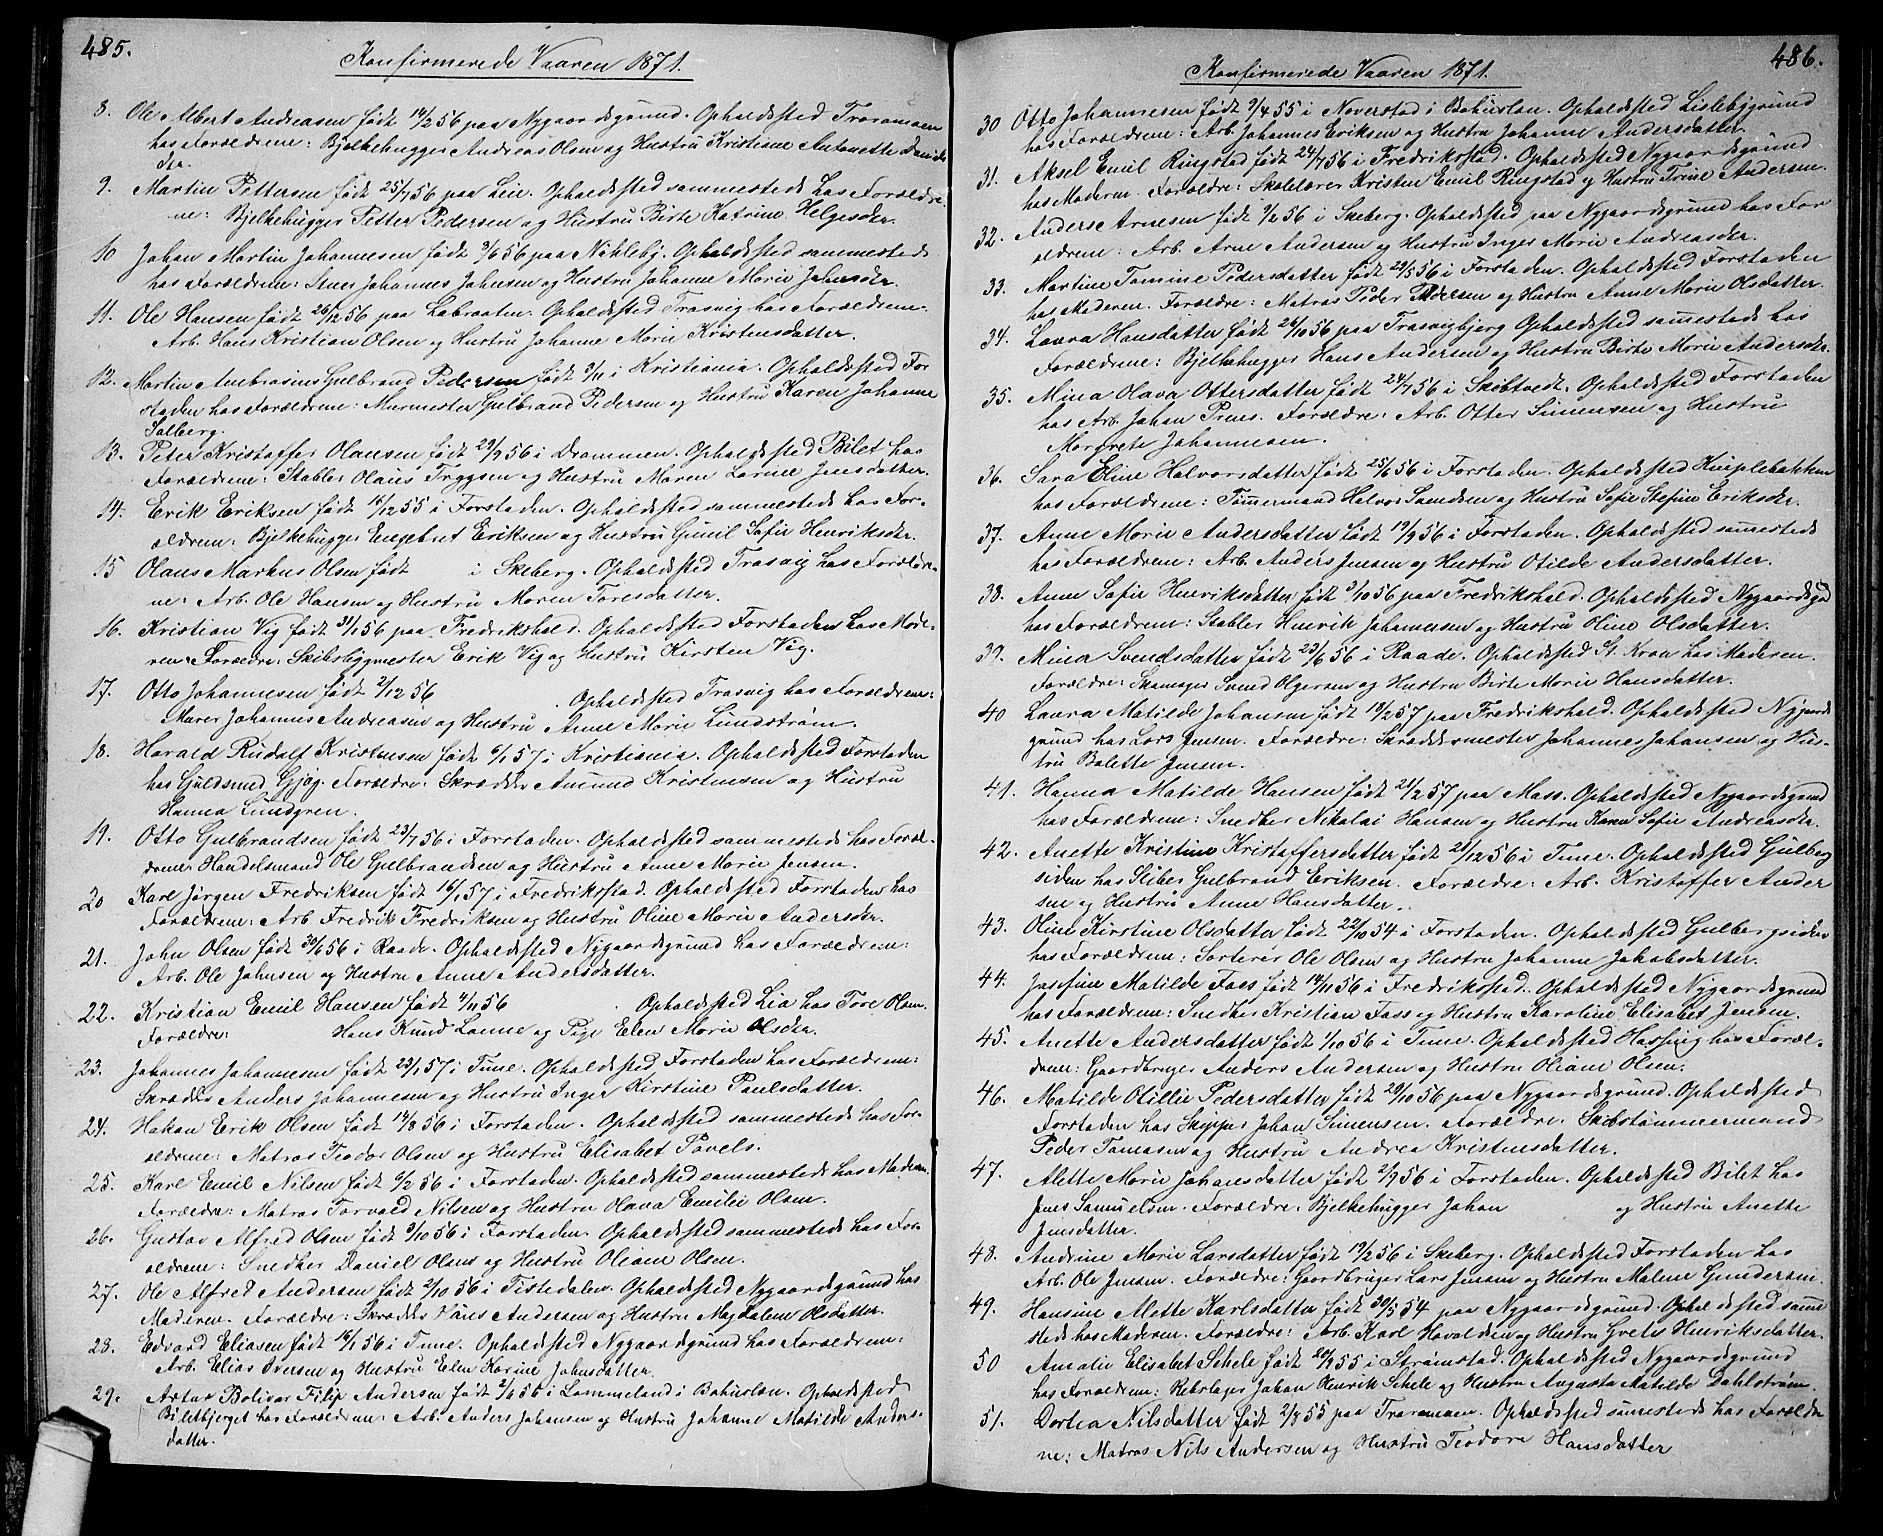 485.
Konfirmerede Vaaren 1871.
8. Ole Albert Andreasen født 14/2 56 paa Nygaardsgrund. Opholdssted Traramoen
hos Forældrene: Bjelkehugger Andreas Olsen og Hustru Kristine Antonette Daniels
der.
9. Martin Pettersen født 25/7 56 paa Leie. Opholdssted sammesteds hos Forældre
ne: Bjelkehugger Petter Pedersen og Hustru Birte Katrine Helgesdr.
10 Johan Martin Johannesen født 9/6 56 paa Nikleby. Opholdssted sammesteds
hos Forældrene: Johannes Johnsen og Hustru Johanne Marie Johnsdr.
11. Ole Hansen født 26/12 56 paa Labraaten. Opholdssted Trasvig hos Forældrene.
Arb. Hans Kristian Olsen og Hustru Johanne Marie Kristensdatter.
12. Martin Ambrosius Gulbrand Pedersen født 9/11 i Kristiania. Opholdssted For
staden hos Forældrene: Murmester Gulbrand Pedersen og Hustru Karen Johanne
Solberg.
13. Peter Kristoffer Olausen født 29/9 56 i Drammen. Opholdssted Bilet hos
Forældrene: Stabler Olaus Tryggsen og Hustru Maren Lovise Jensdatter.
14. Erik Eriksen født 16/12 55 i Forstaden. Opholdssted sammesteds hos For-
ældrene: Bjelkehugger Engebret Eriksen og Hustru Gunil Sofie Henriksdr.
15 Olaus Markus Olsen født i Skeberg. Opholdssted Trasvig hos Forældre-
ne: Arb. Ole Hansen og Hustru Maren Toresdatter.
16. Kristian Vig født 31/1 56 paa Fredrikshald. Opholdssted Forstaden hos Mode-
ren. Forældre: Skibsbygmester Erik Vig og Hustru Kirsten Vig.
17. Otto Johannesen født 2/12 56 . Opholdssted Trasvig hos Forældrene:
Murer Johannes Andreasen og Hustru Anne Marie Lundstrøm.
18. Harald Rudolf Kristensen født 6/1 57 i Kristiania. Opholdssted Forstaden
hos Guldsmed Gjøg. Forældre: Skrædder Amund Kristensen og Hustru
Hanna Lindgren.
19. Otto Gulbrandsen født 23/7 56 i Forstaden. Opholdssted sammesteds hos Foræl-
drene: Handelsmand Ole Gulbrandsen og Hustru Anne Marie Jensen.
20 Karl Jørgen Fredriksen født 16/1 57 i Fredrikstad. Opholdssted Forstaden hos
Forældrene: Arb Fredrik Fredriksen og Hustru Oline Marie Andersdr.
21. John Olsen født 30/6 56 i Raade. Opholdssted Nygaardsgrund hos Forældrene:
Arb. Ole Johnsen og Hustru Anne Andersdatter.
22. Kristian Emil Hansen født 4/11 56 . Opholdssted Lia hos Tore Olsen.
Forældre: Hans Knud Lanne og Pige Elen Marie Olsdr.
23. Johannes Johannesen født 23/1 57 i Tune. Opholdssted Forstaden hos Forældrene:
Skrædder Anders Johannesen og Hustru Inger Kirstine Paulsdatter.
24. Hakan Erik Olsen født 19/8 56 i Forstaden. Opholdssted sammesteds hos For-
ældrene: Matros Teodor Olsen og Hustru Elisabet Povels.
25. Karl Emil Nilsen født 6/2 56 i Forstaden. Opholdssted sammesteds hos Moderen.
Forældre: Matros Torvald Nilsen og Hustru Olava Emilie Olsen.
26. Gustav Alfred Olsen født 3/10 56 i Forstaden. Opholdssted sammesteds hos For-
ældrene: Snedker Daniel Olsen og Hustru Oliane Olsen.
27. Ole Alfred Andersen født 2/10 56 i Tistedalen. Opholdssted Nygaardsgrund hos
Moderen. Forældre: Skrædder Andersen og Hustru Magdalene Olsdatter.
28. Edvard Eliasen født 16/1 56 i Tune. Opholdssted Nygaardsgrund hos Forældrene:
Arb. Elias Iversen og Hustru Elen Karine Johnsdatter.
29. Artur Bolivar Filip Andersen født 2/6 56 i Lommeland i Bohuslæn. Opholdssted
Biletbjerget hos Forældrene: Arb. Anders Johansen og Hustru Johanne Matilde Anders-
datter.
486.
Konfirmerede Vaaren 1871.
30 Otto Johannesen født 9/4 55 i Noverstad i Bohuslen. Opholdssted Lislebygrund
hos Forældrene: Arb. Johannes Eriksen og Hustru Johanne Andersdatter.
31. Aksel Emil Ringstad født 24/7 56 i Fredrikstad. Opholdssted Nygaardsgrund
hos Moderen. Forældre: Skolelærer Kristen Emil Ringstad og Hustru Trine Andersen.
32. Anders Arnesen født 1/2 56 i Skeberg. Opholdssted paa Nygaardsgrund hos For
ældrene: Arb. Arne Andersen og Hustru Inger Marie Andreasdr.
33. Martine Tomine Pedersdatter født 29/5 56 i Forstaden. Opholdssted Forstaden
hos Moderen. Forældre: Matros Peder Pedersen og Hustru Anne Marie Olsdatter.
34. Laura Hansdatter født 26/10 56 paa Trasvigbjerg Opholdssted sammesteds hos
Forældrene: Bjelkehugger Hans Andersen og Hustru Birte Marie Andersdr.
35. Mina Olava Ottersdatter født 24/7 56 i Skibtvedt. Opholdssted Forstaden
hos Arb. Johan Prens. Forældre: Arb. Otter Simensen og Hustru
Margrete Johannesen.
36. Sara Eline Halvorsdatter født 25/6 56 i Forstaden. Opholdssted Kniplebakken
hos Forældrene: Tømmermand Halvor Svendsen og Hustru Sofie Stefine Eriksdr.
37. Anne Marie Andersdatter født 19/9 56 i Forstaden. Opholdssted sammesteds
hos Forældrene: Arb. Anders Jensen og Hustru Otilde Andersdatter.
38. Anne Sofie Henriksdatter født 3/10 56 paa Fredrikshald. Opholdssted Nygaardsgd
hos Forældrene: Stabler Henrik Johannesen og Hustru Oline Olsdatter.
39. Mina Svendsdatter født 23/6 56 i Raade. Opholdssted St. Kroen hos Moderen.
Forældre: Skomager Svend Olgersen og Hustru Birte Marie Hansdatter.
40 Laura Matilde Johansen født 19/2 57 paa Fredrikshald. Opholdssted Nygaards
grund hos Lars Jensen. Forældre: Skræddermester Johannes Johansen og Hus-
tru Bolette Jensen.
41. Hanna Matilde Hansen født 21/2 57 paa Moss. Opholdssted Nygaardsgrund
hos Forældrene: Snedker Nikolai Hansen og Hustru Karen Sofie Andreasdr.
42. Anette Kristine Kristoffersdatter født 28/12 56 i Tune. Opholdssted Gulberg
siden hos Sliber Gulbrand Eriksen. Forældre: Arb. Kristoffer Ander
sen og Hustru Anne Hansdatter.
43. Oline Kirstine Olsdatter født 22/10 54 i Forstaden. Opholdssted Gulbergsiden
hos Forældrene: Sorterer Ole Olsen og Hustru Johanne Jakobsdatter.
44. Josefine Matilde Foss født 14/11 56 i Fredrikstad. Opholdssted Nygaardsgrund
hos Forældrene: Snedker Kristian Foss og Hustru Karoline Elisabet Jensen.
45. Anette Andersdatter født 1/10 56 i Tune. Opholdssted Hassing hos Foræl-
drene: Gaardbruger Anders Andersen og Hustru Oliane Olsen.
46. Matilde Otillie Pedersdatter født 20/10 56 paa Nygaardsgrund. Opholdssted
Forstaden hos Skipper Johan Simensen. Forældre: Skibstømmermand
Peder Tomasen og Hustru Andrea Kristensdatter.
47. Alette Marie Johansdatter født 2/9 56 i Forstaden. Opholdssted Bilet hos
Jens Samuelsen. Forældre: Bjelkehugger Johan og Hustru Anette
Jensdatter.
48. Andrine Marie Larsdatter født 19/2 56 i Skeberg. Opholdssted Forstaden hos
Arb. Ole Jensen. Forældre: Gaardbruger Lars Jensen og Hustru Malene Gundersen.
49. Hansine Mette Karlsdatter født 30/5 54 paa Nygaardsgrund. Opholdssted samme
sted hos Moderen. Forældre: Arb. Karl Havalden og Hustru Grete Henriksdatter.
50 Amalie Elisabet Schele født 20/9 55 i Strømstad. Opholdssted Nygaardsgrund
hos Forældrene: Rebslager Johan Henrik Schele og Hustru Augusta Matilde Dahlstrøm.
51. Dortea Nilsdatter født 2/8 55 paa Traramoen. Opholdssted sammesteds hos Forældre
ne: Matros Nils Andersen og Hustru Teodore Hansdatter